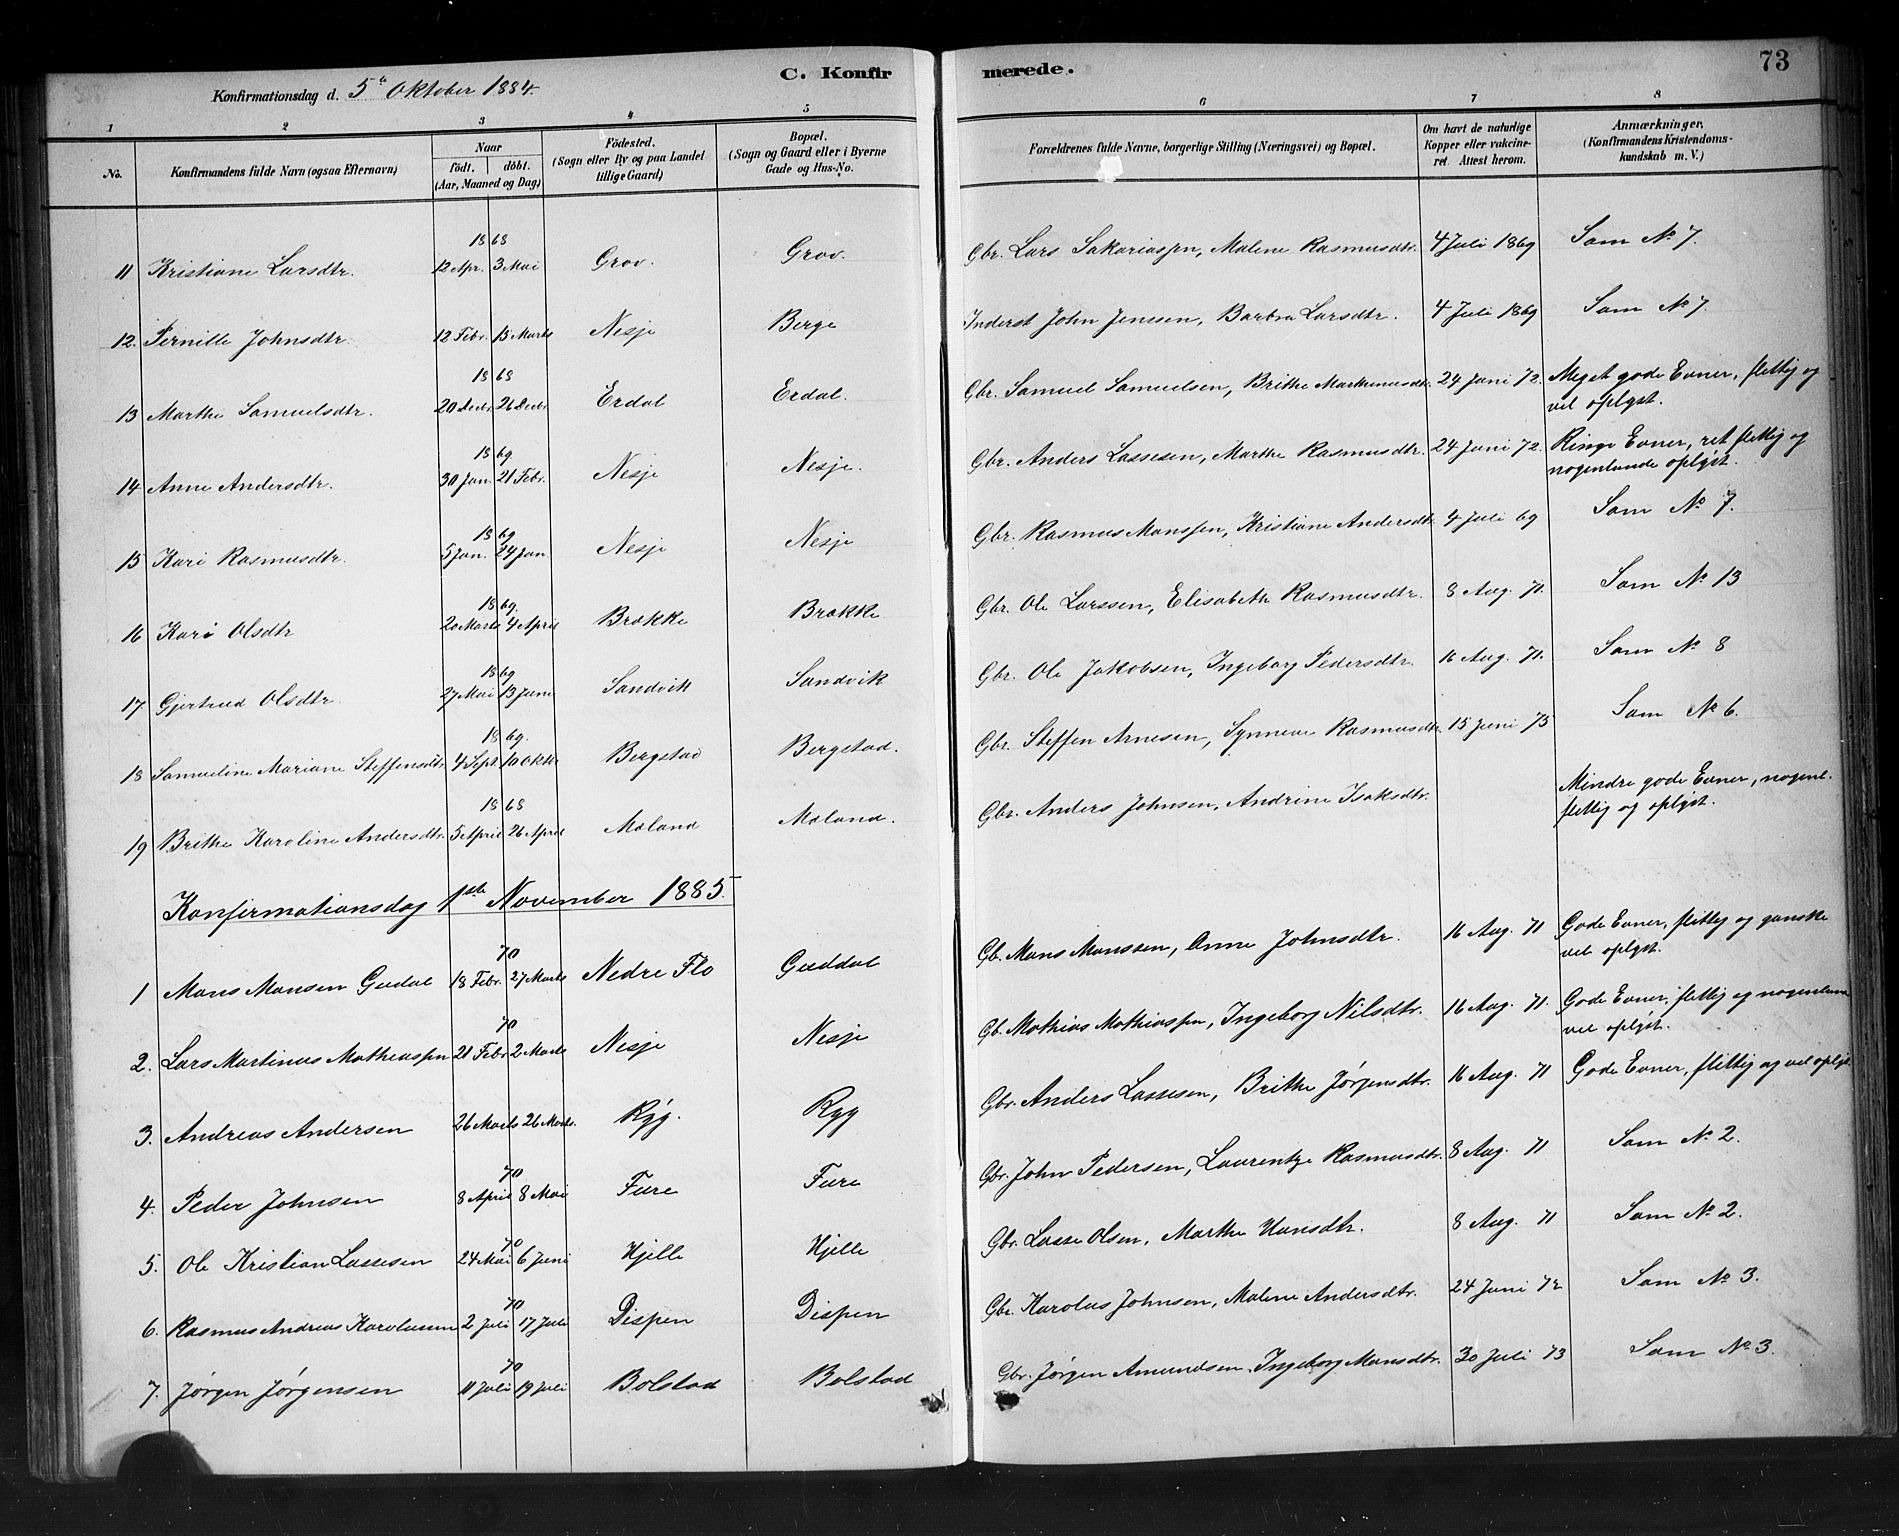 73
C. Konfirmerede.
Konfirmationsdag d. 5te Oktober 1884.
1 2 3 4 5 6 7 8
No. | Konfirmandens fulde Navn (ogsaa Efternavn) | Naar födt. döbt. (Aar, Maaned og Dag) | Födested. (Sogn eller By og paa Landet tillige Gaard) | Bopæl. (Sogn og Gaard eller i Byerne Gade og Hus-No. | Forældrenes fulde Navne, borgerlige Stilling (Næringsvei) og Bopæl. | Om havt de naturlige Kopper eller vakcineret. Attest herom. | Anmærkninger, (Konfirmandens Kristendomskundskab m. V.)
11 Kristiane Larsdtr. 1868 12 Apr. 3 Mai Grov. Grov. Gbr. Lars Sakariassen, Malene Rasmusdtr. 4 Juli 1869 Som No 7.
12. Pernille Johnsdtr. 12 Febr. 15 Marts Nesje Berge Inderst John Jensen, Barbra Larsdtr. 4 Juli 1869 Som No 7.
13 Marthe Samuelsdtr. 1868 20 Decbr. 26 Decbr. Erdal Erdal. Gbr. Samuel Samuelsen, Brithe Markusdtr. 24 Juni 72. Meget gode Evner, flittig og vel oplyst.
14 Anne Andersdtr. 1869 30 Jan. 21 Febr. Nesje Nesje. Gbr. Anders Lassesen, Marthe Rasmusdtr. 24 Juni 72. Ringe Evner, ret flittig og nogenlunde oplyst.
15 Kari Rasmusdtr. 1869 5 Jan. 24 Jan Nesje Nesje Gbr. Rasmus Monssen, Kristiane Andersdtr. 4 Juli 69 Som No 7.
16 Kari Olsdtr 1869. 20 Marts 4 April Brække Brække Gbr. Ole Larssen, Elisabeth Rasmusdtr. 8 Aug. 71. Som No 13
17. Gjertrud Olsdtr. 1869 27 Mai 13 Juni Sandvik Sandvik Gbr. Ole Jakobsen, Ingeborg Pedersdtr. 16 Aug. 71. Som No 8
18 Samueline Mariane Steffensdtr. 1869. 4 Sept. 10 Oktr. Bergstad Bergstad. Gbr. Steffen Arnesen, Synneve Rasmusdtr. 15 Juni 75 Som No 6.
19 Brithe Karoline Andersdtr. 1868 5 April 26 April Moland Moland. Gbr. Anders Johnsen, Andrine Isaksdtr. Mindre gode Evner, nogenl. flittig og oplyst.
Konfirmationsdag 1ste November 1885.
1 Mons Monsen Gudal 70 18 Febr. 27 Marts Nedre Flo Guddal Gb. Mons Monssen, Anne Johnsdtr. 16 Aug. 71 Gode Evner, flittig og ganske vel oplyst.
2. Lars Martinus Mathiassen 70 21 Febr 2 Marts Nesje Nesje Gb. Mathias Mathiassen, Ingeborg Nilsdtr. 16 Aug. 71. Gode Evner, flittig og nogenlunde vel oplyst.
3. Andreas Andersen 26 Marts 26 Marts. Ryg. Ryg Gbr. Anders Lassesen, Brithe Jørgensdtr. 16 Aug. 71 Gode Evner, flittig og vel oplyst.
4. Peder Johnsen 70 8 April 8 Mai Fure Fure Gbr. John Pedersen, Laurentze Rasmusdtr. 8 Aug. 71 Som No 2.
5. Ole Kristian Lassesen 70 24 Mai 6 Juni Hjelle Hjelle Gbr. Lasse Olsen, Marthe Hansdtr. 8 Aug. 71 Som No 2.
6. Rasmus Andreas Karolussen 70 2 Juli 17 Juli Dispen Dispen Gbr. Karolus Johnsen, Malene Andersdtr. 24 Juni 72 Som No 3.
7. Jørgen Jørgensen 70 11 Juli 19 Juli Bolstad Bolstad Gbr. Jørgen Amundsen, Ingeborg Monsdtr. 30 Juli 73 Som No 3.